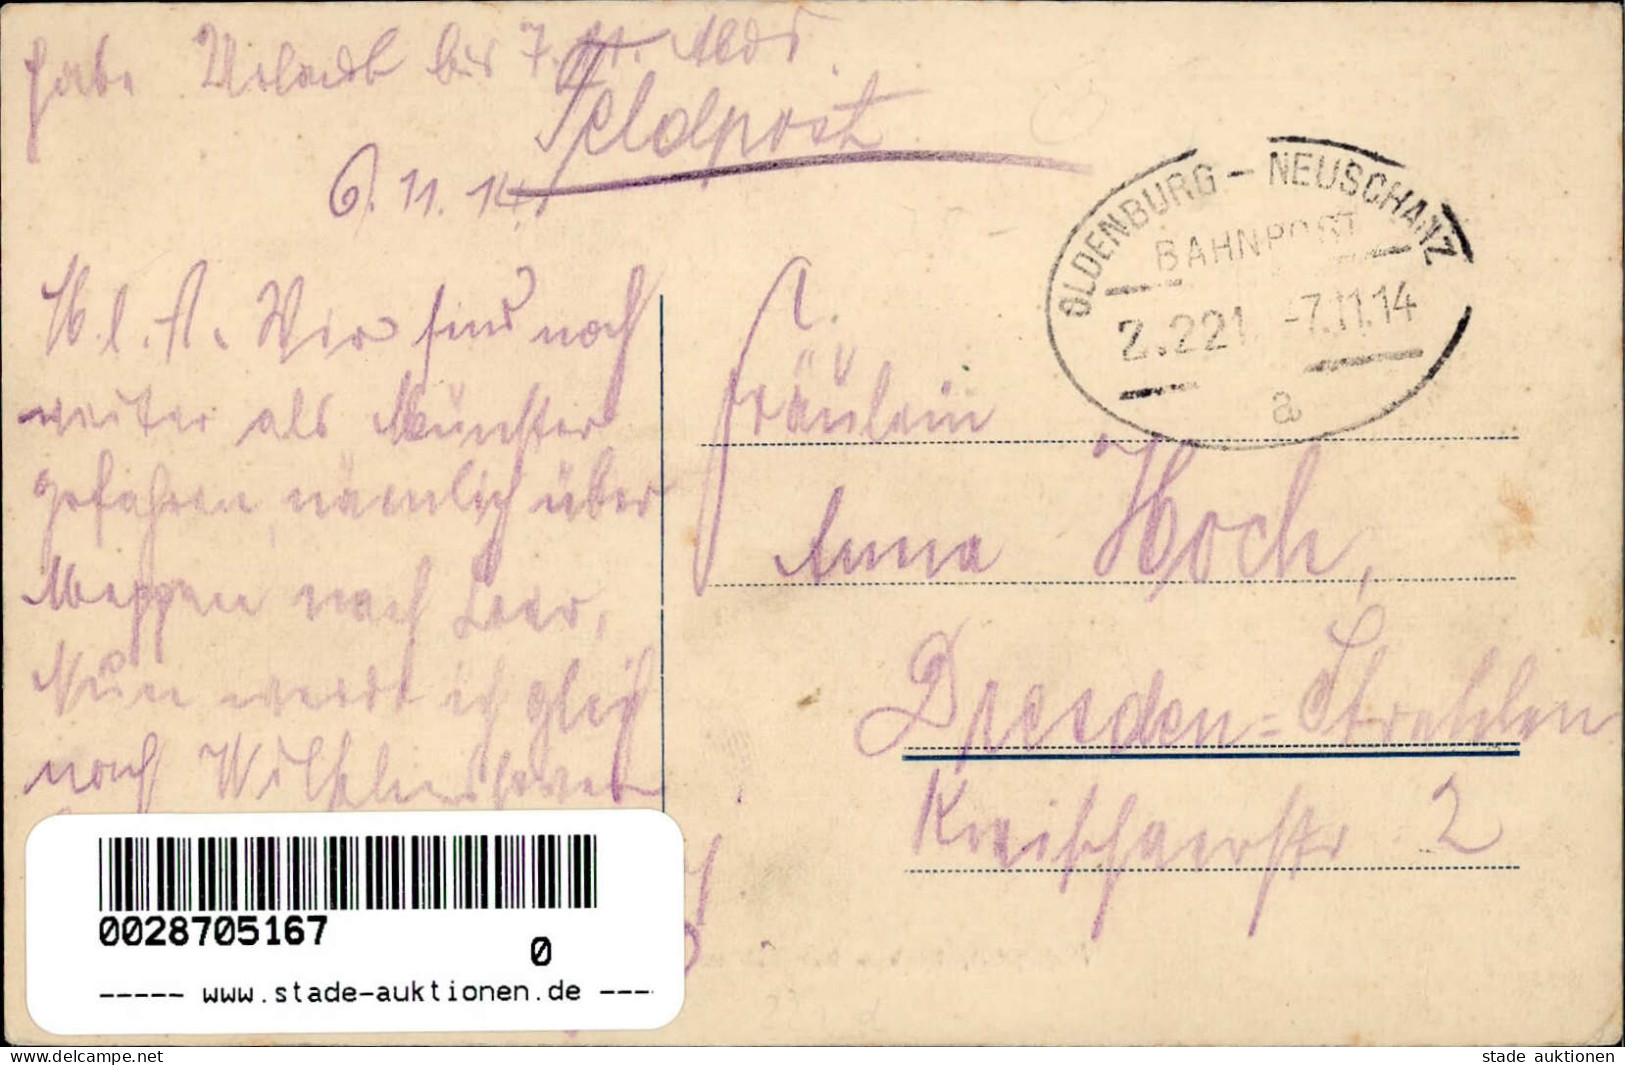 habe Urlaub bis 7. 11. Abds
Feldpost
6. 11. 14.
OLDENBURG - NEUSCHANZ
BAHNPOST
Z.221 -7.11.14
a
M. l. A. Wir sind noch
weiter als Münster
gefahren, nämlich über
Meppen nach Leer,
Nun werde ich gleich
nach Wilhelmshaven
Fräulein
Anna Hoch,
Dresden-Strehlen
Kreischaerstr 2
0028705167
0
----- www.stade-auktionen.de ----
delcampe.net
stade auktionen